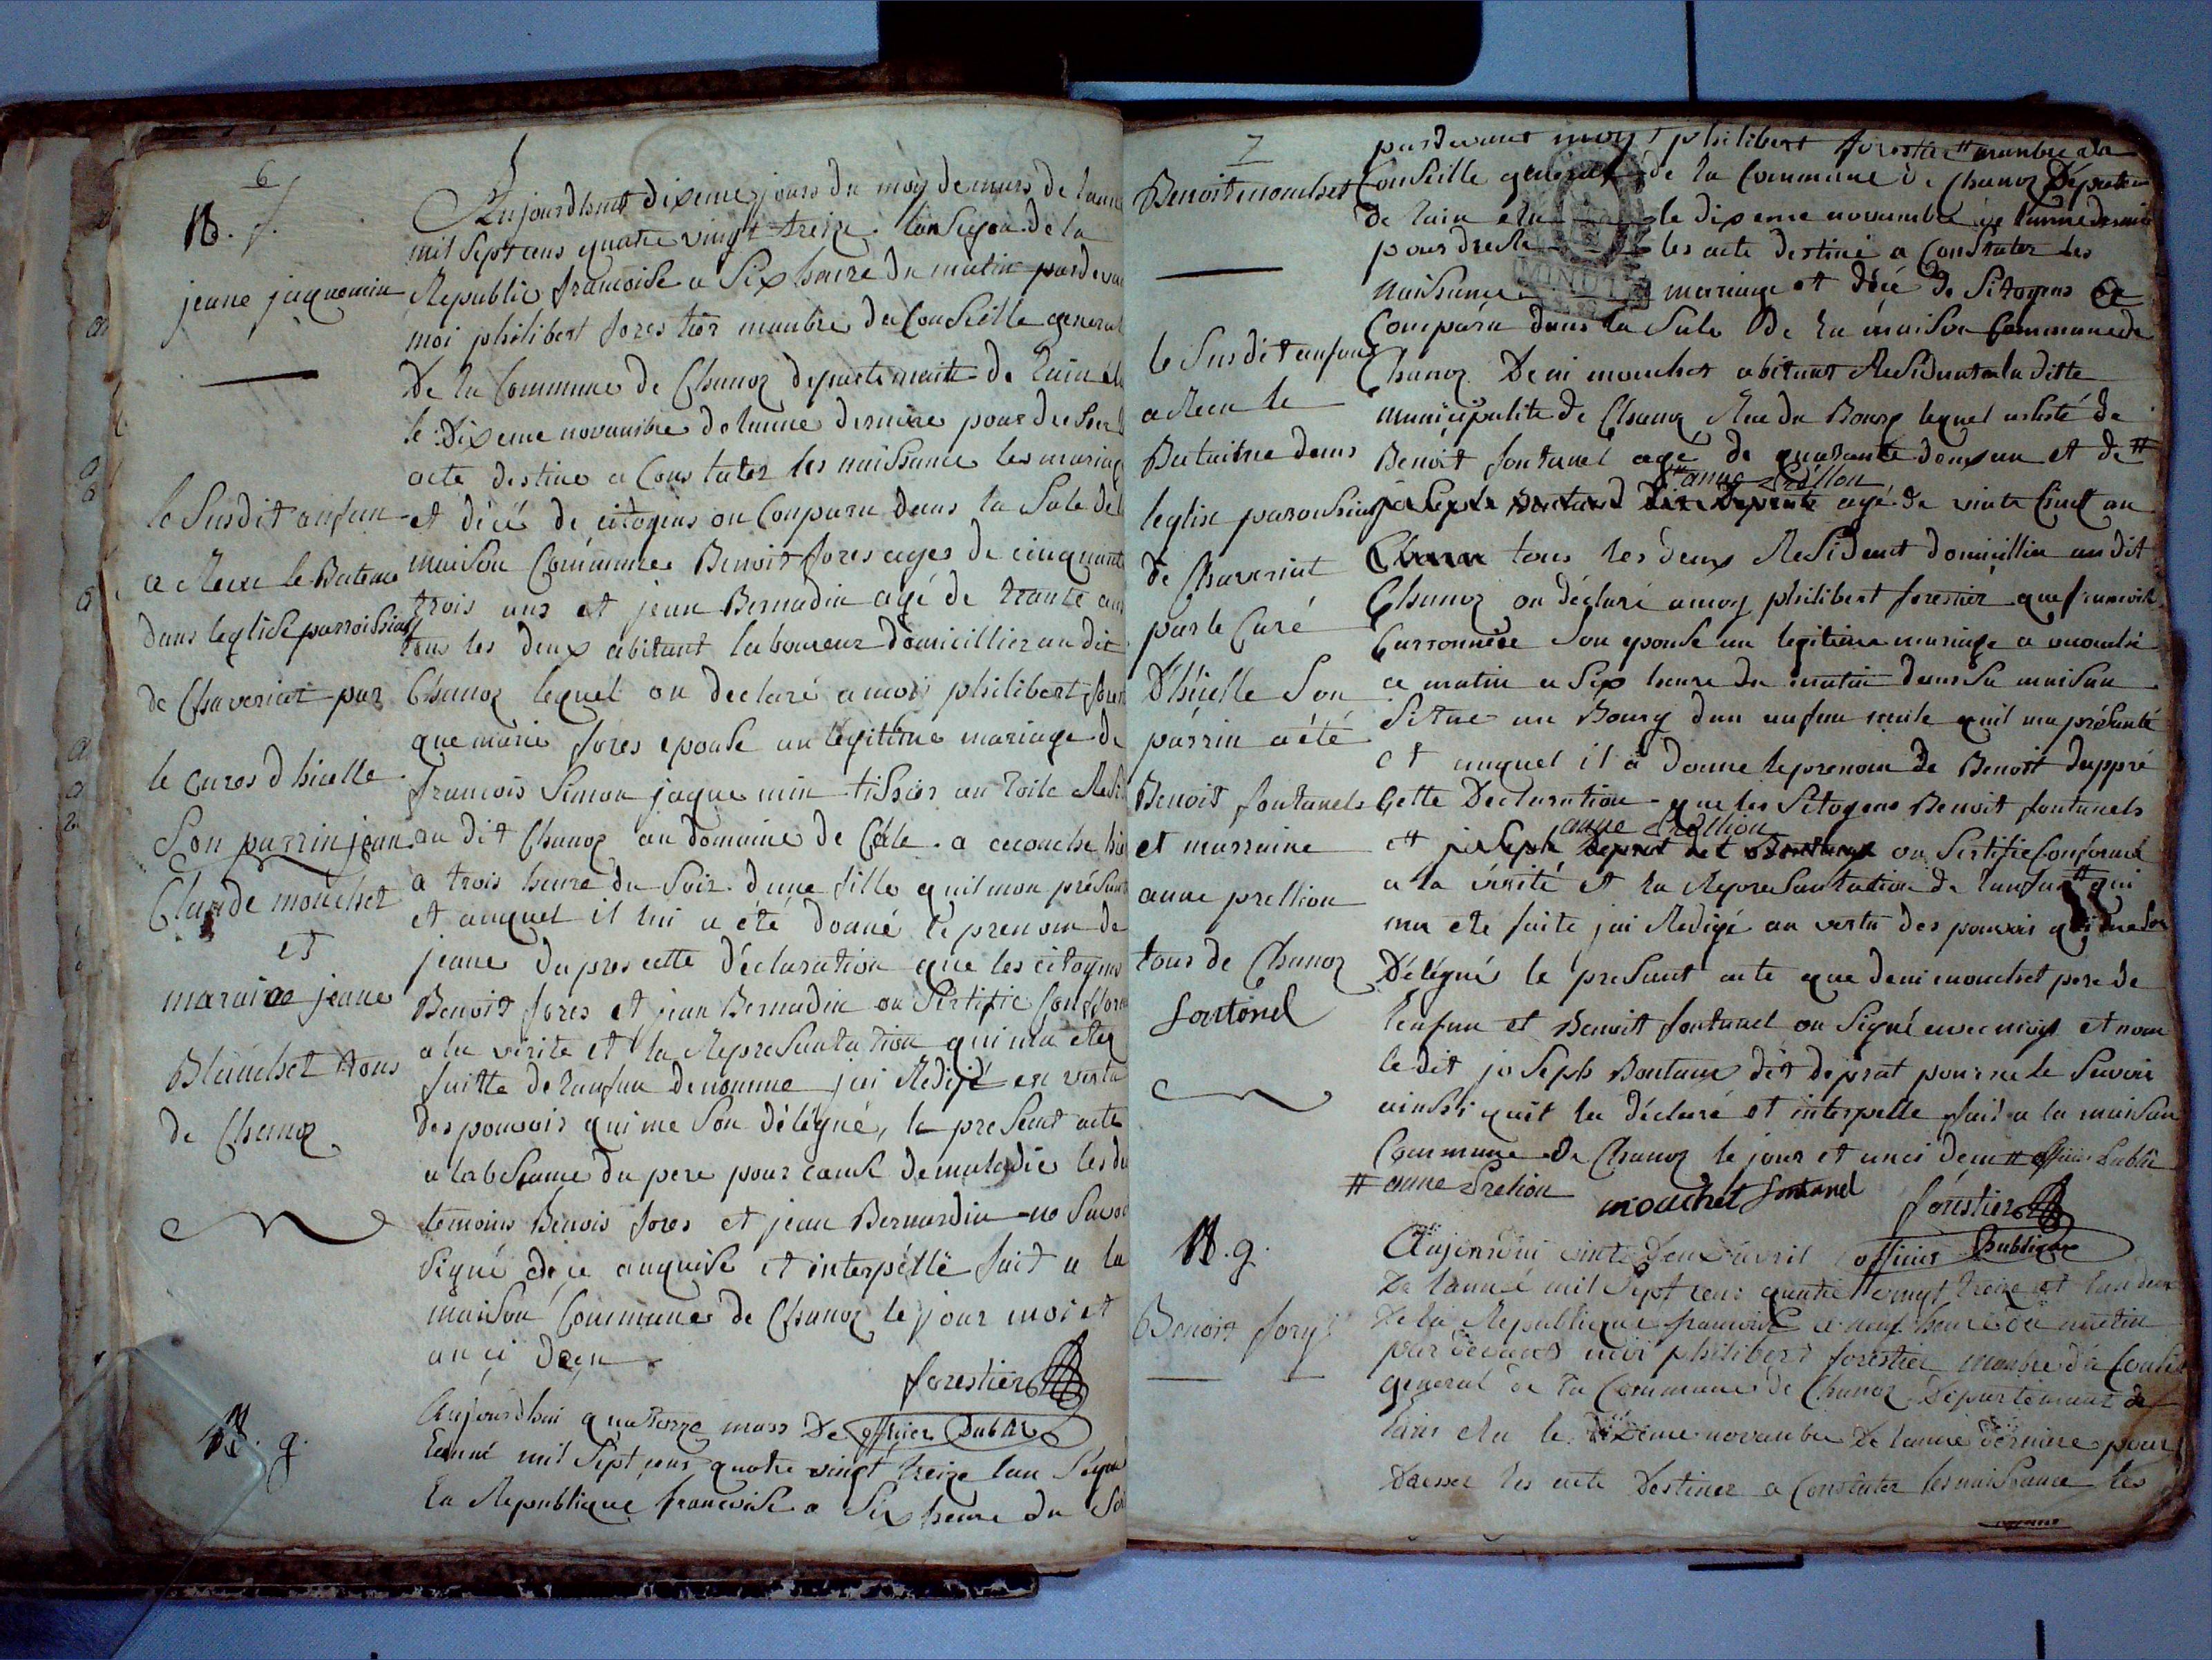 6
N. f.
jeane jaquemin
le Susdit anfan
a Recu le Bateme
dans leglise parroissial
de Chaveriat par
le cures d huelle
Son parrin jean
Claude mouchet
et
maraine jeane
Blanchet tous
de Chanoz
N. g.
Aujourdhuit dixeme jours du moy de mars de lanne
mil Sept cens quatre vingt treize lan Segon de la
Republic francoise a Six heure du matin pardevan
moi philibert forestier manbre du Conseille general
De la Commune de Chanoz departemant de Lain élu
le Dixeme novambre de lanne derniere pour dresser l
acte destine a Constater les naissance les mariag
et décé de citoyens on Conparu dans la Sale de l
maison Commune Benoit fores ages de cinquante
trois ans et jean Bernadin agé de trante ans
tous les deux abitant laboureur domicillier au dit
Chanoz lequel on declaré a moi philibert fores
que marie fores epouse an legitime mariage de
francois Simon jaquemin tissier an toile Resi
au dit Chanoz au domaine de Cole a acouche hie
a trois heure du Soir dune fille quil mon présant
et auquel il lui a été donné le prenom de
jeane dapres cette déclaration que les citoyens
Benoit fores et jean Bernadin on Sertifie Conform
a la vérité et la Represantation qui ma etez
faitte de lanfan denomme jai Redigé en vertu
des pouvoir qui me Son délégué, le present acte
a labesance du pere pour cause de maladie les du
temoins Benois fores et jean Bernardin no Savoi
Signé de ce anquise et interpéllé fait a la
maison Commune de Chanoz le jour moi et
an ci deçu
forestier
officier Public
Aujourdhui quatorze mars De
Lanné mil Sept cens quatre vingt treize lan Segon
La Republique francoise a Six heure du Soi
7
Benoit mouchet
le Susdit anfan
a Recu le
Bataime dans
leglise paroissial
de Chaveriat
par le Curé
Dhuelle Son
parrin a été
Benoit fontanels
et marraine
anne prellion
tous de Chanoz
fontanel
N. g.
Benoit fory
pardevant moy philibert forestier manbre du
Conseille general de la Commune de Chanoz Departem
de lain elu le dixeme novambre de lanne derniere
pour dresser les acte destiné a Constater les
naissance mariage et décé de Sitoyens
Comparu dans la Sale de la maison Commune de
Chanoz Deni mouchet abitant Residant a la ditte
municipalite de Chanoz Rue du Bourg lequel asisté de
Benoit fontanel age de quarante deux an et de #
# anne Prellion
joseph agé de vinte Cinct an
tous les deux Resident domicillier au dit
Chanoz on déclaré a moy philibert forestier que francoise
Carronniere Son epouse an legitime mariage a acouché
ce matin a Six heure du matin dans Sa maison
Situe au Bourg dun anfan male quil ma présanté
et auquel il a donne le prenom de Benoit dappré
Cette Declaration que les Sitoyens Benoit fontanels
anne Prellion
et joseph on Sertifie Conforme
a la vérité et la Represantation de lanfan qui
ma été faite jai Redigé an vertu des pouvoir qui me Son
Délégués le presant acte que deni mouchet pere de
lenfan et Benoitt fontanel on Signé avec moy et non
le dit joseph Bontans dit deprat pour ne le Savoir
ainssi quil la déclaré et interpelle fait a la maison
Commune de Chanoz le jour et an ci deçu # officier Public
# anne Prelion
mouchet fontanel forestier
officier Publique
Aujourdui vinte deux avril
De lanné mil Sept cens quatre vingt treize et lan deux
De la Republique francoise a neuf heure du matin
par devant moi philibert forestier manbre du Conseil
general de la Commune de Chanoz Departemant de
Lain elu le dixeme novambre De lanne derniere pour
Dresser les acte Destinez a Constater les naissance les